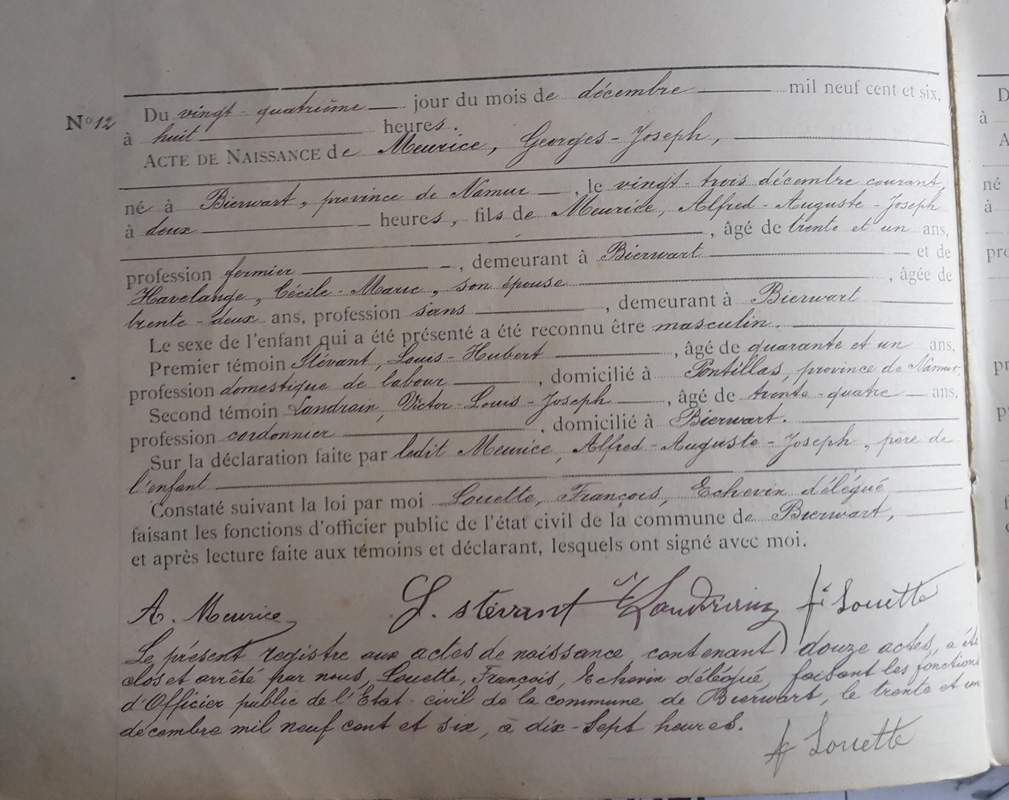 N° 12
Du vingt-quatrième jour du mois de décembre mil neuf cent et six,
à huit heures.
ACTE DE NAISSANCE de Meurice, Georges-Joseph,
né à Bierwart, province de Namur, le vingt-trois décembre courant,
à deux heures, fils de Meurice, Alfred-Auguste-Joseph
, âgé de trente et un ans,
profession fermier, demeurant à Bierwart et de
Havelange, Cécile-Marie, son épouse, âgée de
trente-deux ans, profession sans, demeurant à Bierwart
Le sexe de l'enfant qui a été présenté a été reconnu être masculin.
Premier témoin Stévant, Louis-Hubert, âgé de quarante et un ans,
profession domestique de labour, domicilié à Pontillas, province de Namur,
Second témoin Landrain, Victor-Louis-Joseph, âgé de trente-quatre ans,
profession cordonnier, domicilié à Bierwart.
Sur la déclaration faite par ledit Meurice, Alfred-Auguste-Joseph, père de
l'enfant
Constaté suivant la loi par moi Louette, François, Echevin délégué
faisant les fonctions d'officier public de l'état civil de la commune de Bierwart,
et après lecture faite aux témoins et déclarant, lesquels ont signé avec moi.
A. Meurice L. stévant V Landrain fs Louette
Le présent registre aux actes de naissance, contenant douze actes, a été
clos et arrêté par nous, Louette, François, Echevin délégué faisant les fonctions
d'Officier public de l'Etat-civil de la commune de Bierwart, le trente et un
décembre mil neuf cent et six, à dix-sept heures.
fs Louette